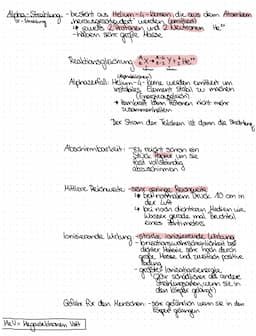 Alpha-Strahlung - besteht aus Helium-4-Kernen, die aus dem Atomkern
α-Strahlung herausgeschleudert werden (emittiert)
↳ jeweils 2 Protonen und 2 Neutronen He²⁺
- haben sehr große Masse
Reaktionsgleichung:
Alphazerfall: Helium-4-Kerne werden emittiert um
instabiles Element stabil zu machen
(Energieausgleich)
zusammenhalten
Der Strom der Teilchen ist dann die Strahlung
Abschirmbarkeit: - Es reicht schon ein
Stück Papier um sie
fast vollständig
abzuschirmen
Mittlere Reichweite: - sehr geringe Reichweite
↳ bei normalem Druck 10 cm in
der Luft
↳ bei noch dichteren Medien wie
Wasser gerade mal Bruchteil
eines Zentimeters
Ionisierende Wirkung: - starke, ionisierende Wirkung
- Ionisationswahrscheinlichkeit bei
dichter Materie sehr hoch durch
große Masse und zweifach positive
Ladung
- größte Ionisationsenergie
(sehr schädlicher als andere
Strahlungsarten wenn sie in
den Körper gelangt)
Gefahr für den Menschen: - sehr gefährlich wenn sie in den
Körper gelangt
MeV = Megaelektronen Volt